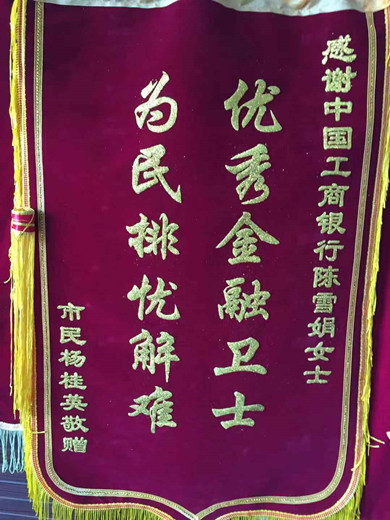 感谢中国工商银行陈雪娟女士
优秀金融卫士
为民排忧解难
市民杨桂英敬赠